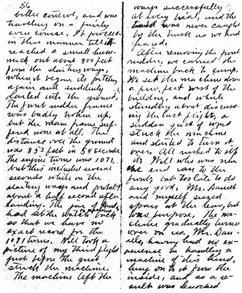 56
better control, and was
traveling on on a fairly
even course. It proceeded
in this manner till it
reached a small hum-
mock out about 800 feet
from the starting ways,
when it began its pitching
again and suddenly
darted into the ground.
The front rudder frame
was badly broken up,
but the main frame suf-
fered none at all. The
distance over the ground
was 852 feet in 59 seconds.
The engine turns was 1071,
but this included several
seconds while on the
starting ways and probably
about a half second after
landing. The jar of landing
had set the watch back
so that we have no
exact record for the
1071 turns. Will took a
picture of my third flight
just before the gust
struck the machine.
The machine left the
ways successfully
at every trial, and the
was never caught
by the truck as we had
feared.
After removing the front
rudder, we carried the
machine back to camp.
We set the machine down
a few feet west of the
building, and while
standing about discuss-
ing the last flight, a
sudden gust of wind
struck the machine
and started to turn it
over. All rushed to stop
it. Will who was near
the end ran to the
front, but too late to do
any good. Mr. Daniels
and myself seized
spars at the rear, but
to no purpose. The ma-
chine gradually turned
over on us. Mr. Dan-
iels, having had no ex-
perience in handling a
machine of this kind,
hung on to it from the
inside, and as a re-
sult was knocked